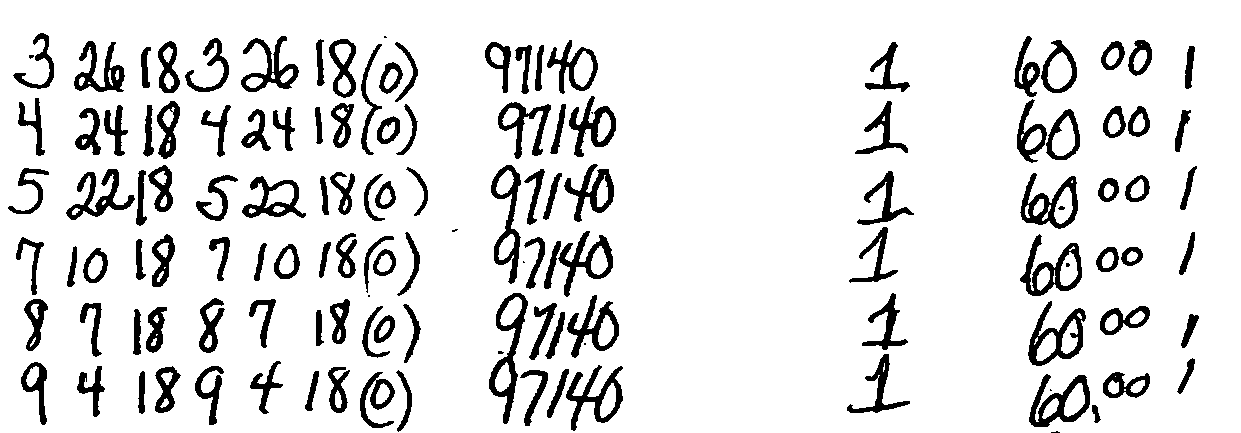 3 26 18 3 26 18 (0) 97140 1 60 00 1
4 24 18 4 24 18 (0) 97140 1 60 00 1
5 22 18 5 22 18 (0) 97140 1 60 00 1
7 10 18 7 10 18 (0) 97140 1 60 00 1
8 7 18 8 7 18 (0) 97140 1 60 00 1
9 4 18 9 4 18 (0) 97140 1 60.00 1